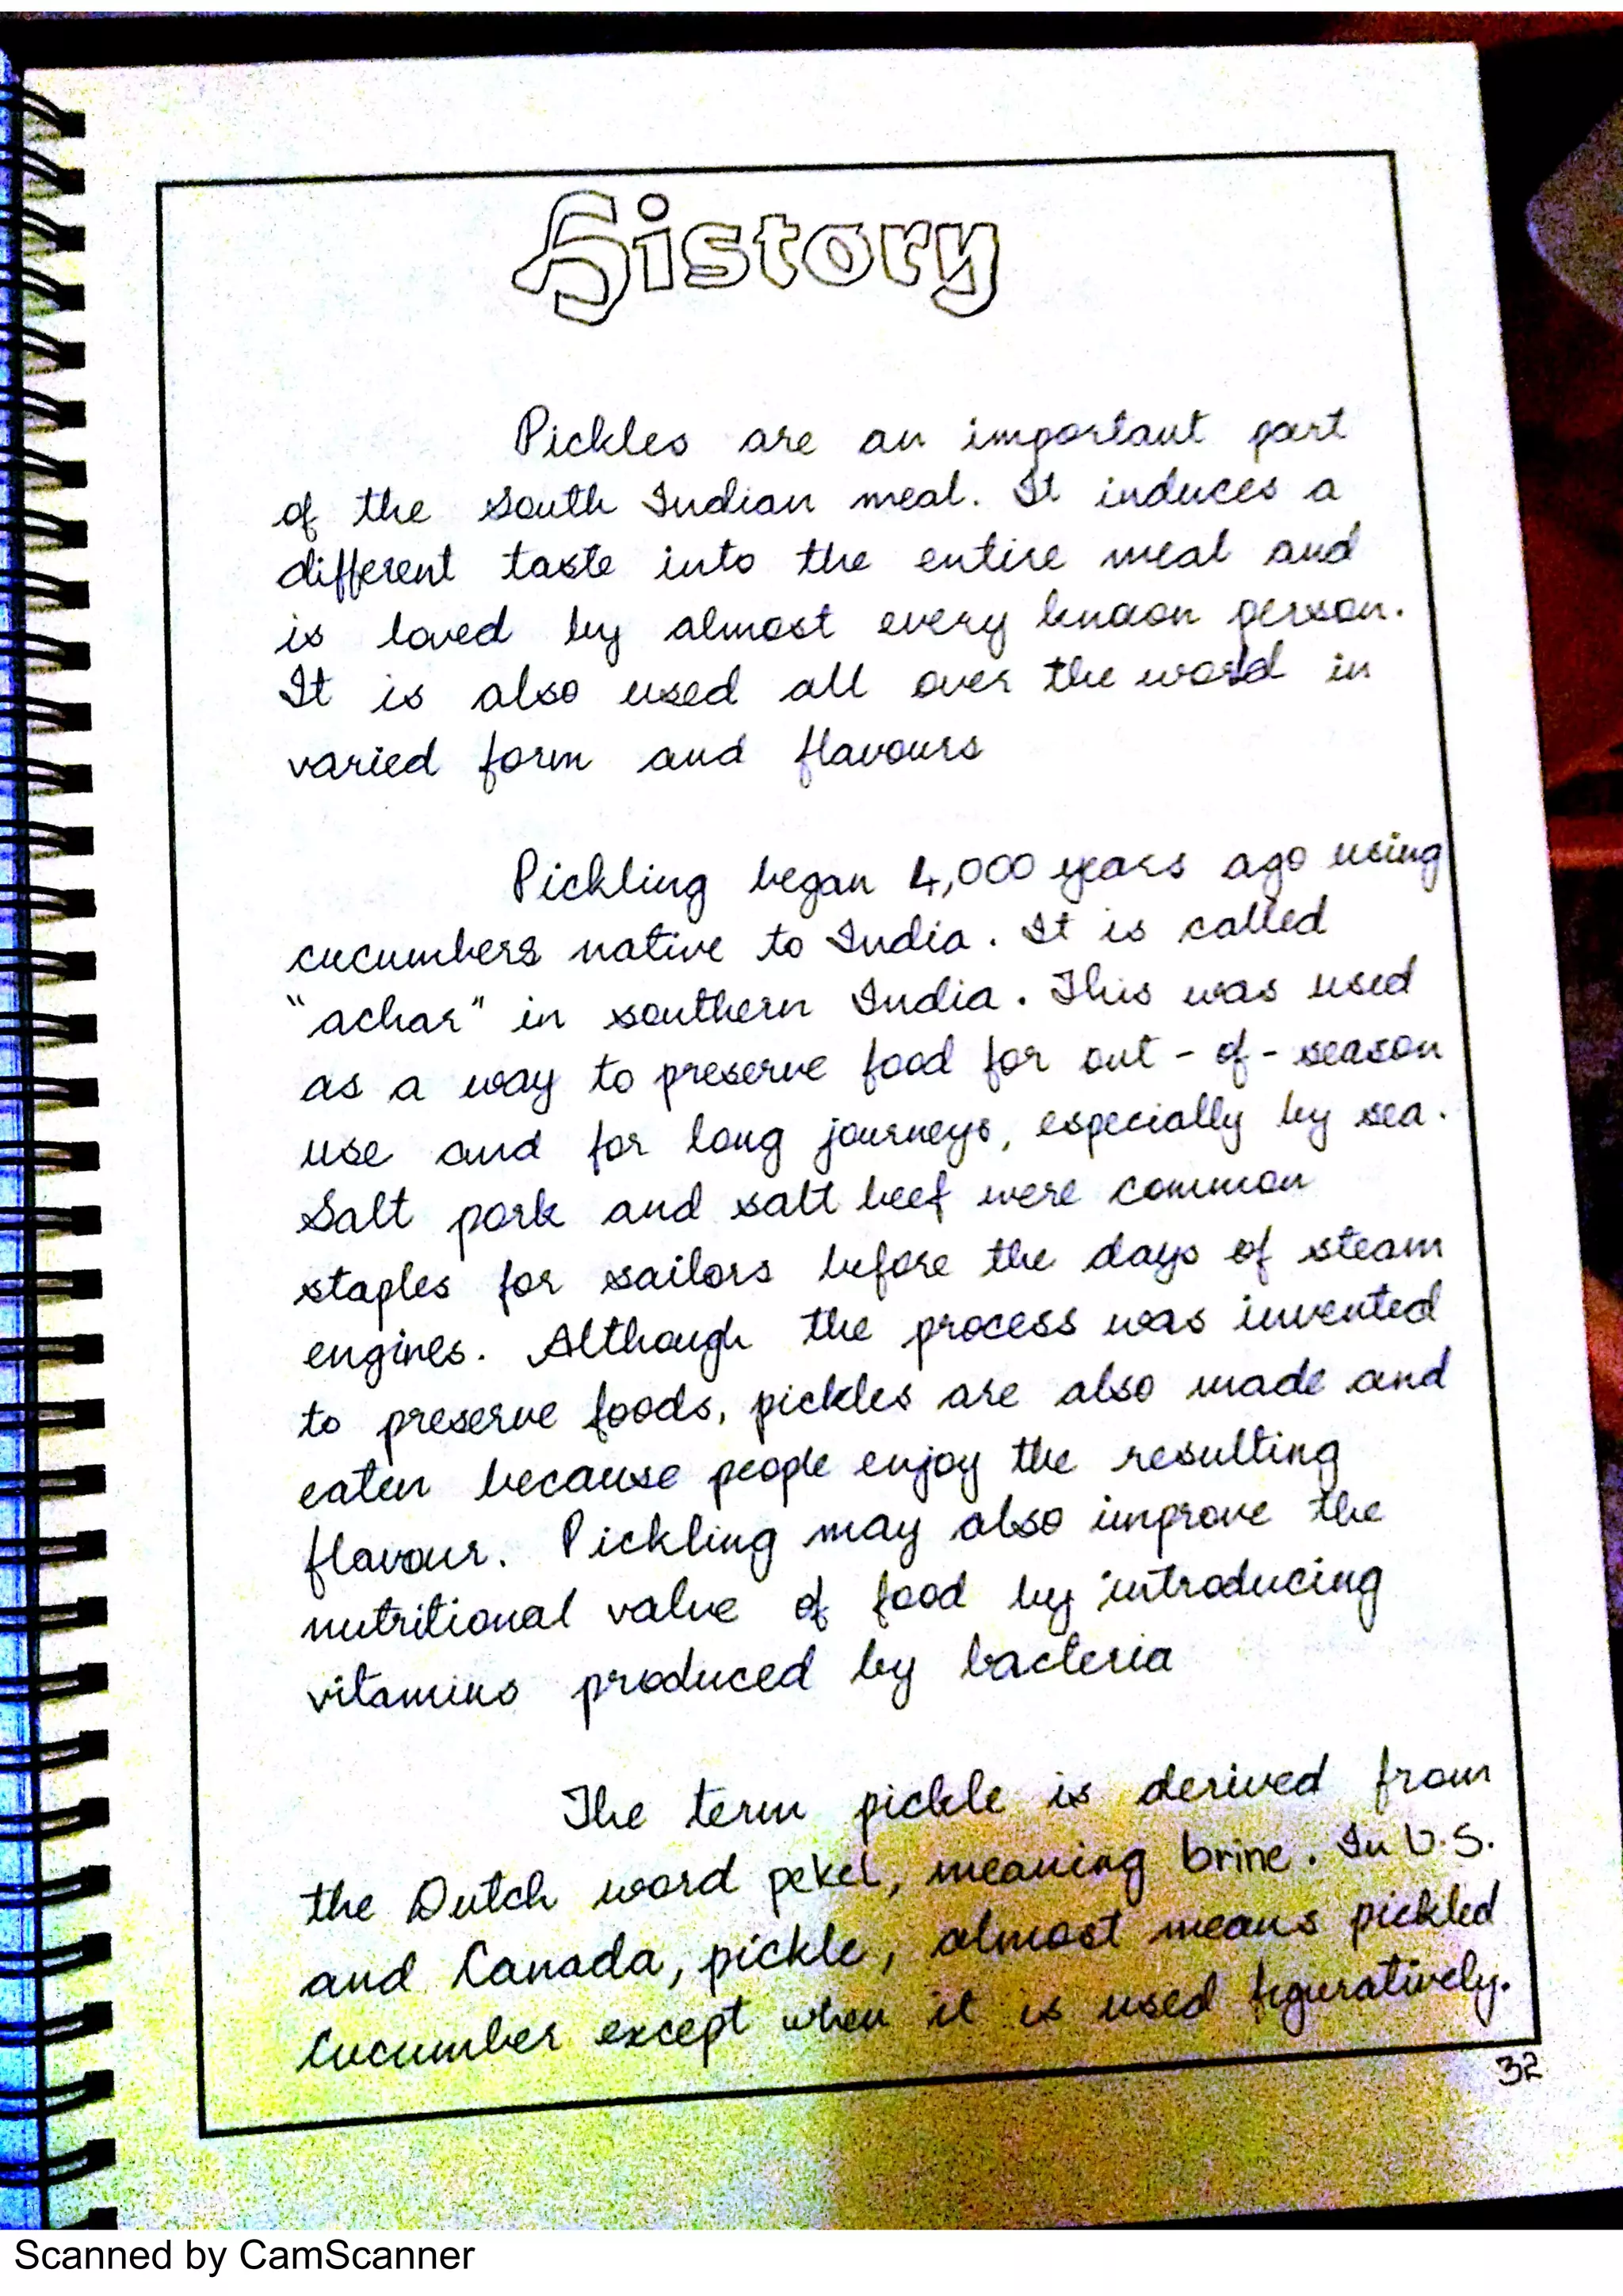 History
Pickles are an important part
of the South Indian meal. It induces a
different taste into the entire meal and
is loved by almost every known person.
It is also used all over the world in
varied form and flavours
Pickling began 4,000 years ago using
cucumbers native to India. It is called
"achar" in southern India. This was used
as a way to preserve food for out-of-season
use and for long journeys, especially by sea.
Salt pork and salt beef were common
staples for sailors before the days of steam
engines. Although the process was invented
to preserve foods, pickles are also made and
eaten because people enjoy the resulting
flavour. Pickling may also improve the
nutritional value of food by introducing
vitamins produced by bacteria
The term pickle is derived from
the Dutch word pekel, meaning brine. In U.S.
and Canada, pickle, almost means pickled
Cucumber except when it is used figuratively.
32
Scanned by CamScanner